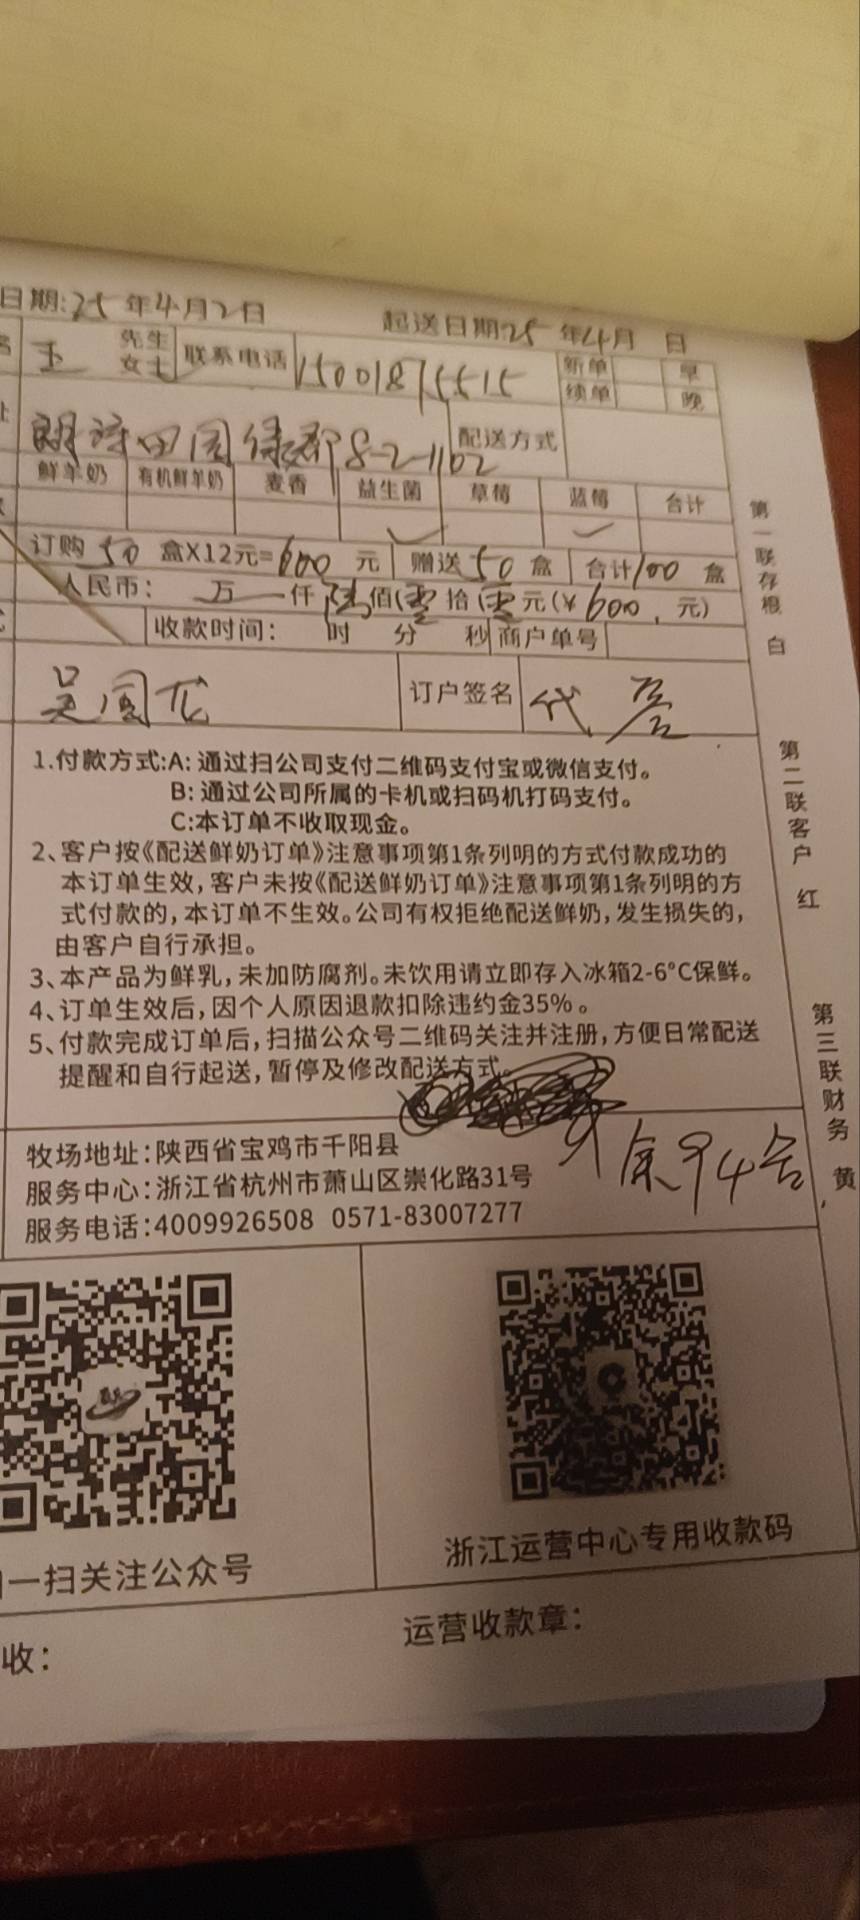 日期:25年4月2日 起送日期25年4月 日
先生 新单 早
女士 联系电话 15001875515 续单 晚
朗诗田园绿郡8-2-1102 配送方式
鲜羊奶 有机鲜羊奶 麦香 益生菌 草莓 蓝莓 合计
订购50盒X12元=600元 赠送50盒 合计100盒
人民币： 万 仟陆佰零拾零元(¥600.元)
收款时间： 时 分 秒 商户单号
吴国龙 订户签名 代
1.付款方式:A: 通过扫公司支付二维码支付宝或微信支付。
B: 通过公司所属的卡机或扫码机打码支付。
C:本订单不收取现金。
2、客户按《配送鲜奶订单》注意事项第1条列明的方式付款成功的
本订单生效，客户未按《配送鲜奶订单》注意事项第1条列明的方
式付款的，本订单不生效。公司有权拒绝配送鲜奶，发生损失的，
由客户自行承担。
3、本产品为鲜乳，未加防腐剂。未饮用请立即存入冰箱2-6°C保鲜。
4、订单生效后，因个人原因退款扣除违约金35%。
5、付款完成订单后，扫描公众号二维码关注并注册，方便日常配送
提醒和自行起送，暂停及修改配送方式。
牧场地址：陕西省宝鸡市千阳县
服务中心：浙江省杭州市萧山区崇化路31号
服务电话：4009926508 0571-83007277
余94合
一扫关注公众号 浙江运营中心专用收款码
收： 运营收款章：
第一联存根 白
第二联客户 红
第三联财务 黄